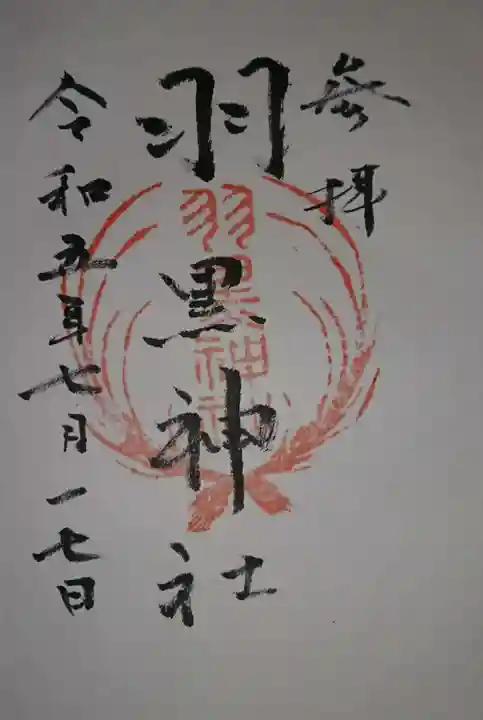 参拝
羽黒神社
羽黒神社
令和五年七月一七日